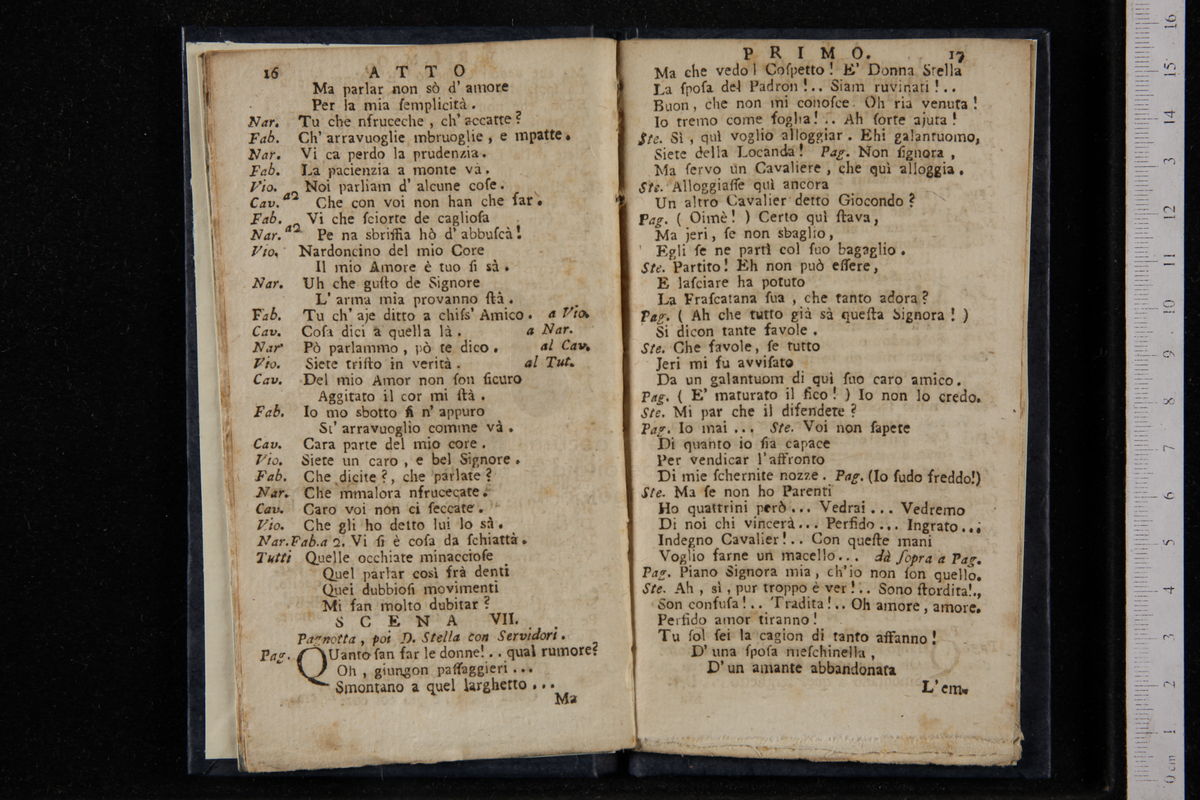 16 ATTO
Ma parlar non sò d' amore
Per la mia ſemplicità.
Nar. Tu che nfruceche, ch' accatte?
Fab. Ch' arravuoglie mbruoglie, e mpatte.
Nar. Vi ca perdo la prudenzia.
Fab. La pacienzia a monte va.
Vio. Noi parliam d' alcune coſe.
Cav. a2 Che con voi non han che far.
Fab. Vi che ſciorte de caglioſa
Nar. a2 Pe na sbriſſia hò d' abbuſcà!
Vio. Nardoncino del mio Core
Il mio Amore è tuo ſi sà.
Nar. Uh che guſto de Signore
L' arma mia provanno ſtà.
Fab. Tu ch' aje ditto a chiſs' Amico. a Vio.
Cav. Coſa dici a quella là. a Nar.
Nar Pò parlammo, pò te dico. al Cav.
Vio. Siete triſto in verità. al Tut.
Cav. Del mio Amor non ſon ſicuro
Aggitato il cor mi ſtà.
Fab. Io mo sbotto ſi n' appuro
St' arravuoglio comme và.
Cav. Cara parte del mio core.
Vio. Siete un caro, e bel Signore.
Fab. Che dicite?, che parlate?
Nar. Che mmalora nfrucecate.
Cav. Caro voi non ci ſeccate.
Vio. Che gli ho detto lui lo sà.
Nar. Fab. a 2. Vi ſi è coſa da ſchiattà.
Tutti Quelle occhiate minaccioſe
Quel parlar così frà denti
Quei dubbioſi movimenti
Mi fan molto dubitar?
SCENA VII.
Pagnotta, poi D. Stella con Servidori.
Pag. QUanto ſan far le donne!.. qual rumore?
Oh, giungon paſſaggieri...
Smontano a quel larghetto...
Ma
PRIMO. 17
Ma che vedo! Coſpetto! E' Donna Stella
La ſpoſa del Padron!.. Siam ruvinati!..
Buon, che non mi conoſce. Oh ria venuta!
Io tremo come foglia!.. Ah ſorte ajuta!
Ste. Sì, quì voglio alloggiar. Ehi galantuomo,
Siete della Locanda! Pag. Non ſignora,
Ma ſervo un Cavaliere, che quì alloggia.
Ste. Alloggiaſſe quì ancora
Un altro Cavalier detto Giocondo?
Pag. ( Oimè! ) Certo quì ſtava,
Ma jeri, ſe non sbaglio,
Egli ſe ne partì col ſuo bagaglio.
Ste. Partito! Eh non può eſſere,
E laſciare ha potuto
La Fraſcatana ſua, che tanto adora?
Pag. ( Ah che tutto già sà queſta Signora! )
Si dicon tante favole.
Ste. Che favole, ſe tutto
Jeri mi fu avviſato
Da un galantuom di quì ſuo caro amico.
Pag. ( E' maturato il fico! ) Io non lo credo.
Ste. Mi par che il difendete?
Pag. Io mai... Ste. Voi non ſapete
Di quanto io ſia capace
Per vendicar l'affronto
Di mie ſchernite nozze. Pag. (Io ſudo freddo!)
Ste. Ma ſe non ho Parenti
Ho quattrini però... Vedrai... Vedremo
Di noi chi vincerà... Perfido... Ingrato...
Indegno Cavalier!.. Con queſte mani
Voglio farne un macello... dà ſopra a Pag.
Pag. Piano Signora mia, ch'io non ſon quello.
Ste. Ah, sì, pur troppo è ver!.. Sono ſtordita!..
Son confuſa!.. Tradita!.. Oh amore, amore.
Perfido amor tiranno!
Tu ſol ſei la cagion di tanto affanno!
D' una ſpoſa meſchinella,
D' un amante abbandonata
L' em.